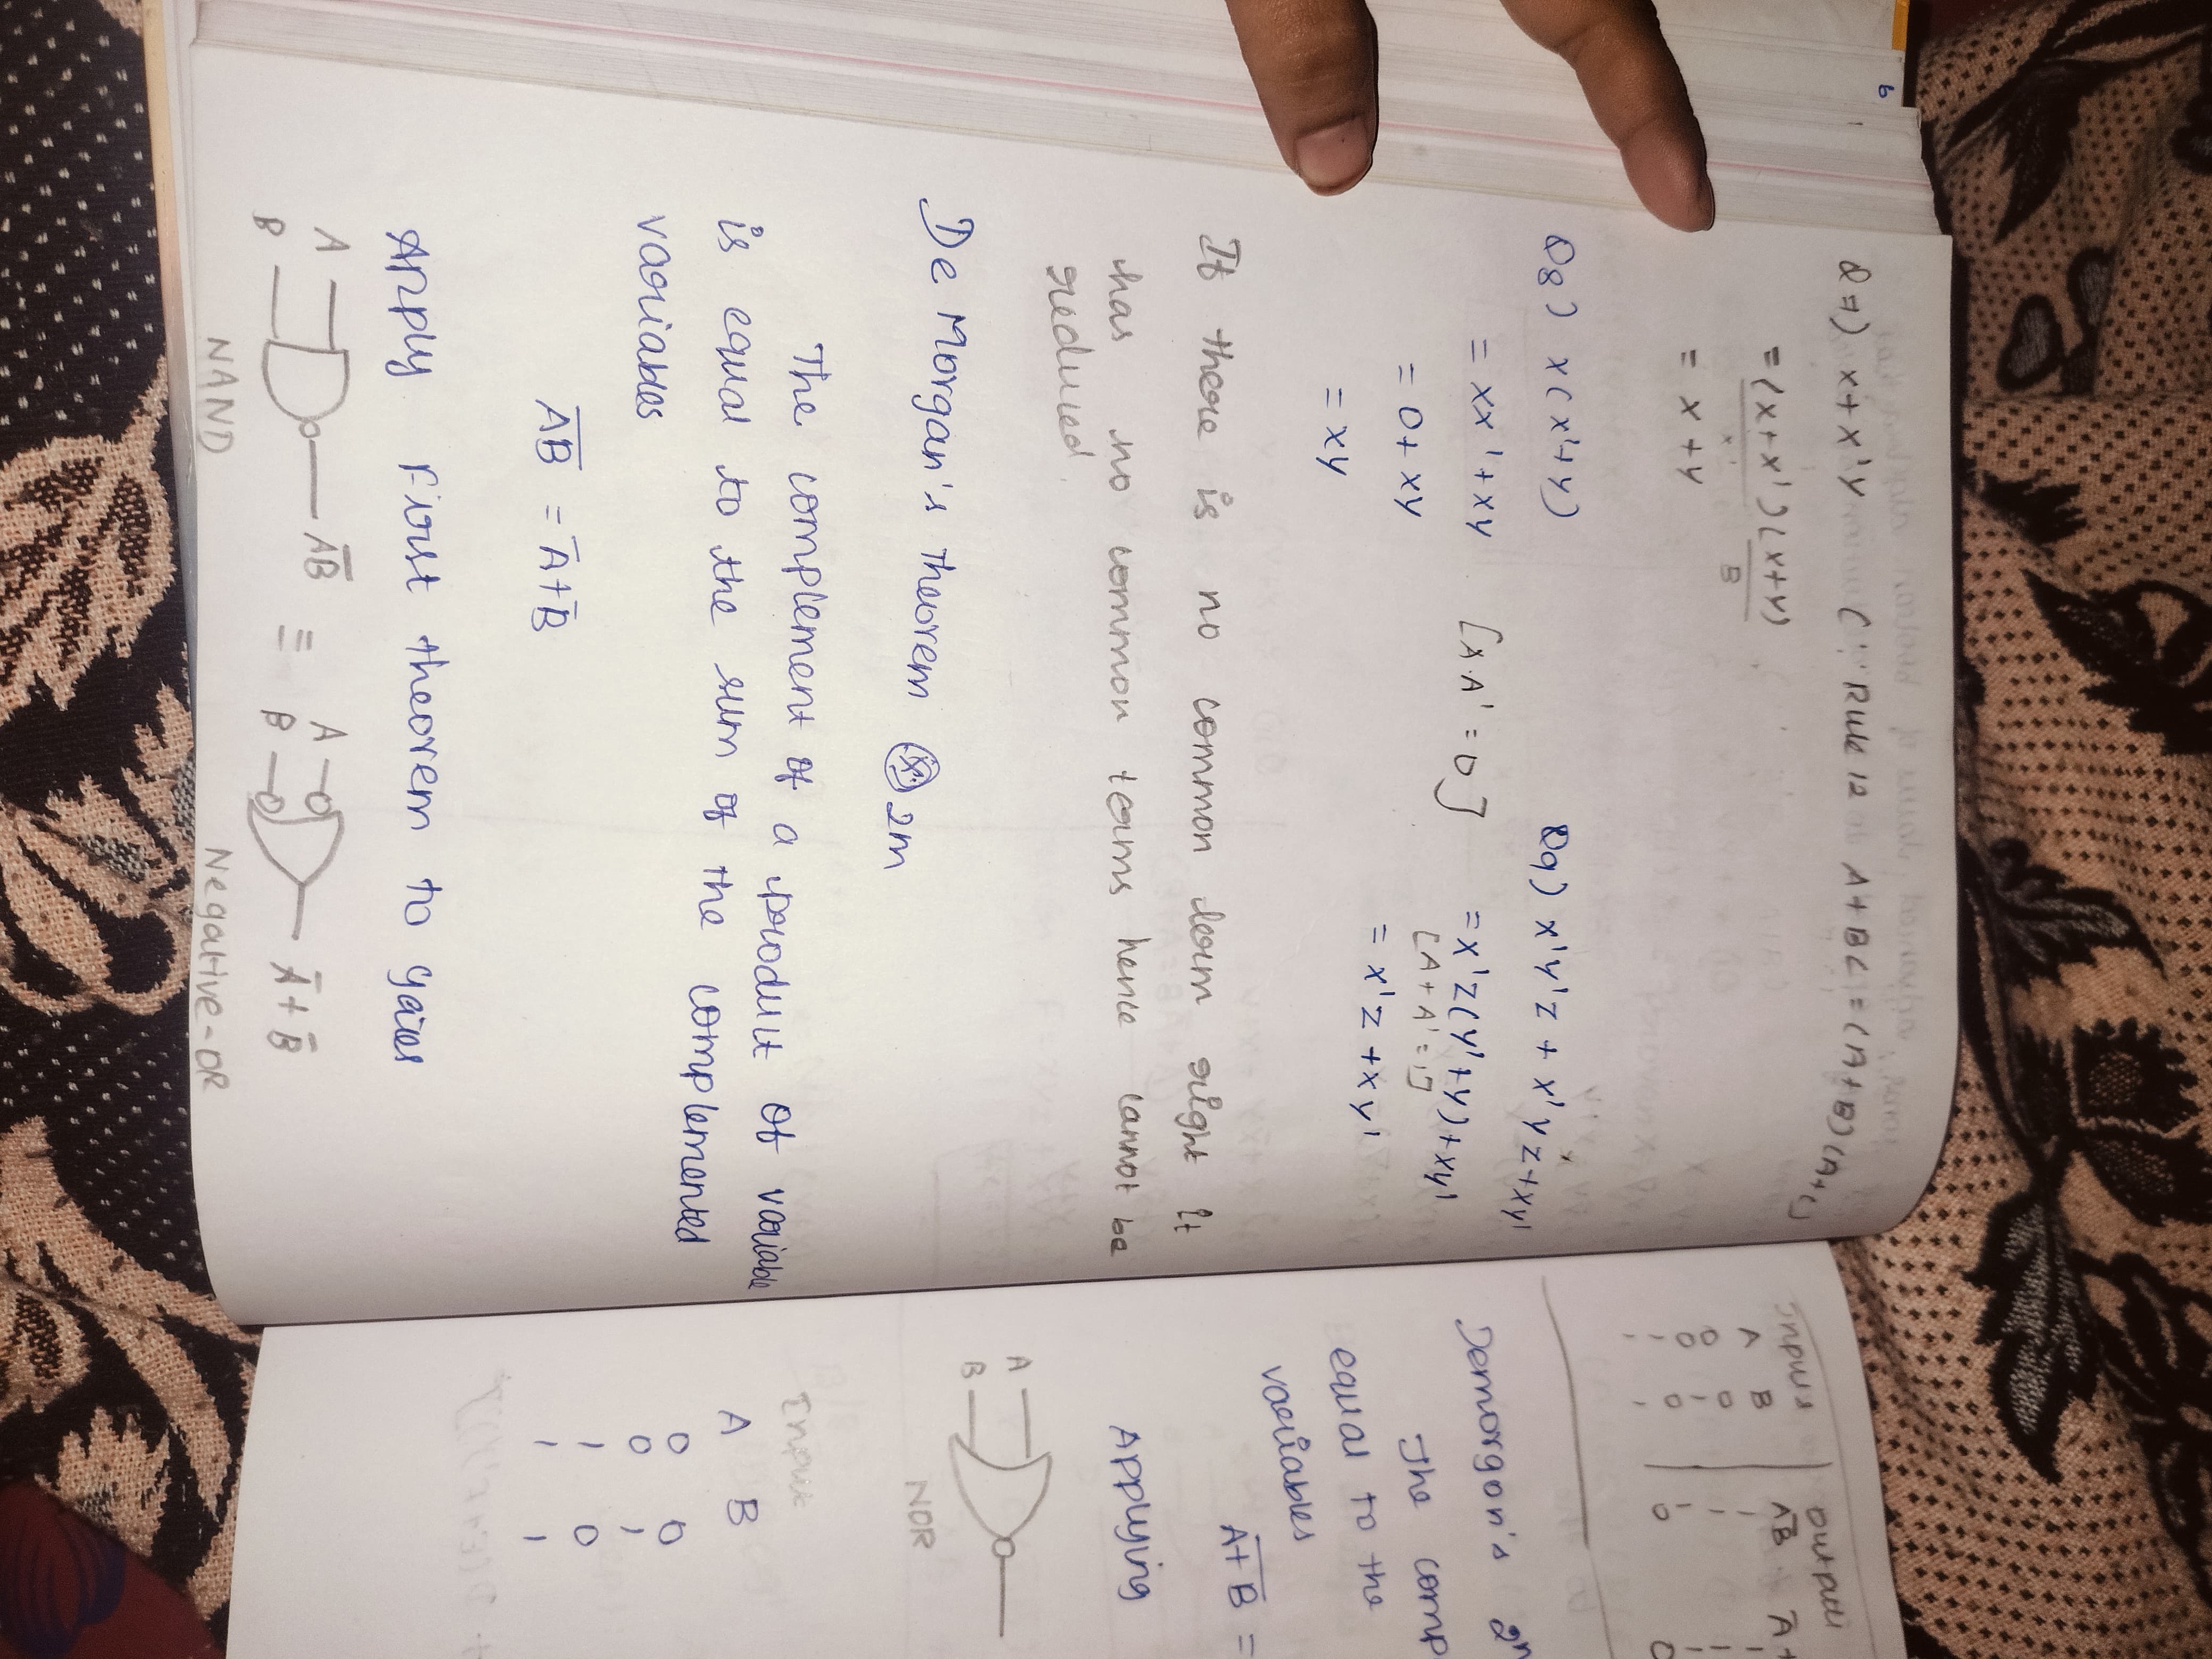 Q7) x + x'y (∵ Rule 12 A+BC = (A+B)(A+C)
= (x+x') (x+y)
B
= x + y
Q8) x (x'+y)
= xx' + xy [A.A' = 0]
= 0 + xy
= xy
Q9) x'y'z + x'yz + xy'
= x'z(y'+y) + xy'
[A+A' = 1]
= x'z + xy'
If there is no common term right it
has no common terms hence cannot be
reduced.
De Morgan's theorem 2m
The complement of a product of variable
is equal to the sum of the complemented
variables
A̅B̅ = A̅ + B̅
Apply First theorem to gates
A
B
A̅B̅
≡
A
B
A̅ + B̅
NAND
Negative-OR
Input Output
A B A̅B̅ A̅ +
0 0 1 1
0 1 1 1
1 0 1 1
1 1 0 0
Demorgan's 2n
The comp
equal to the
variables
A̅+̅B̅ =
Applying
A
B
NOR
Input
A B
0 0
0 1
1 0
1 1